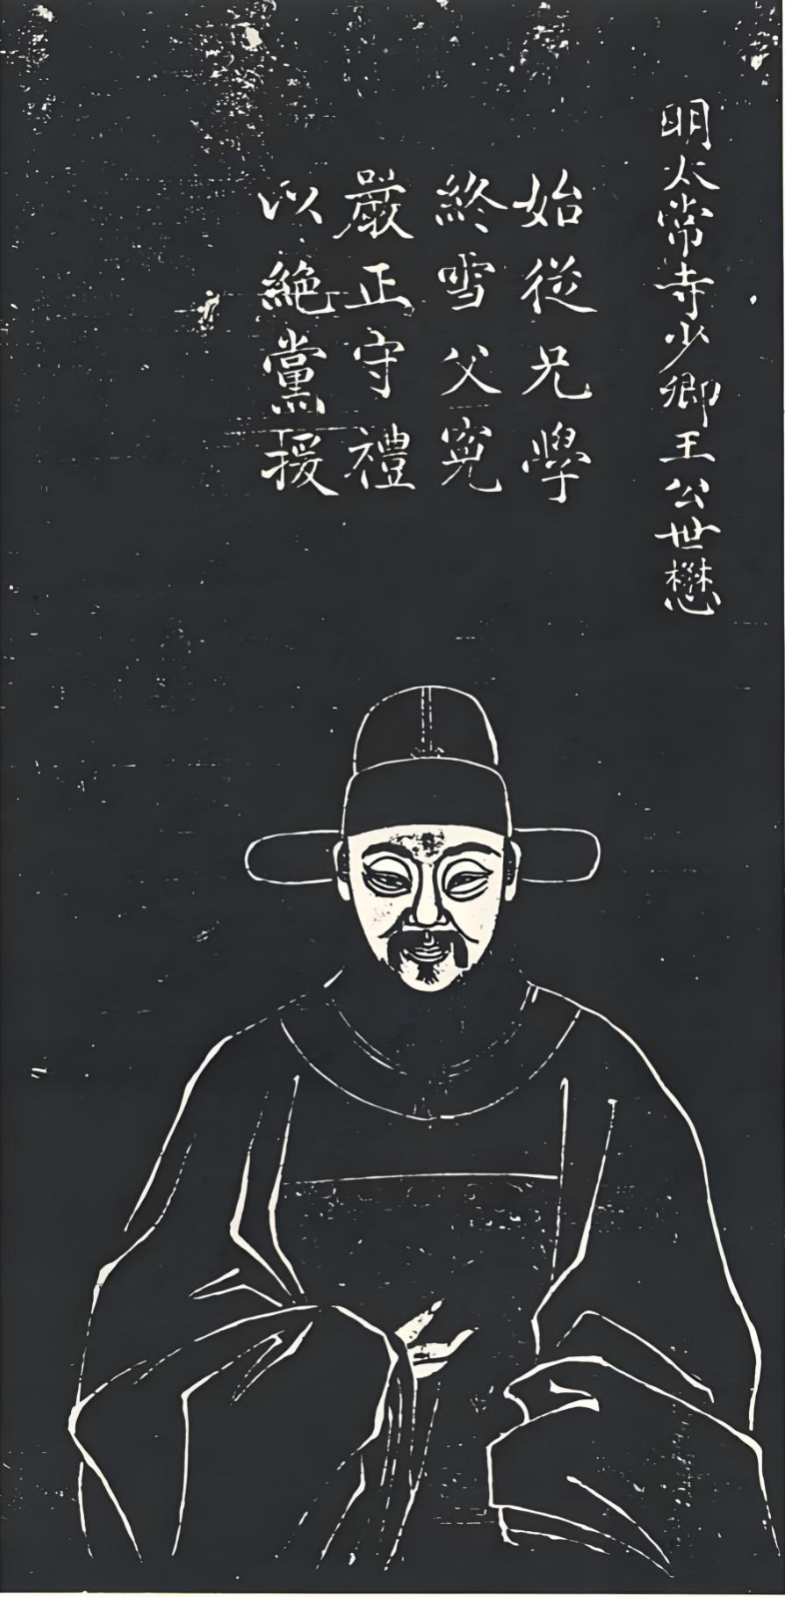 明太常寺少卿王公世懋
始從兄學
終雪父寃
嚴正守禮
以絶黨援